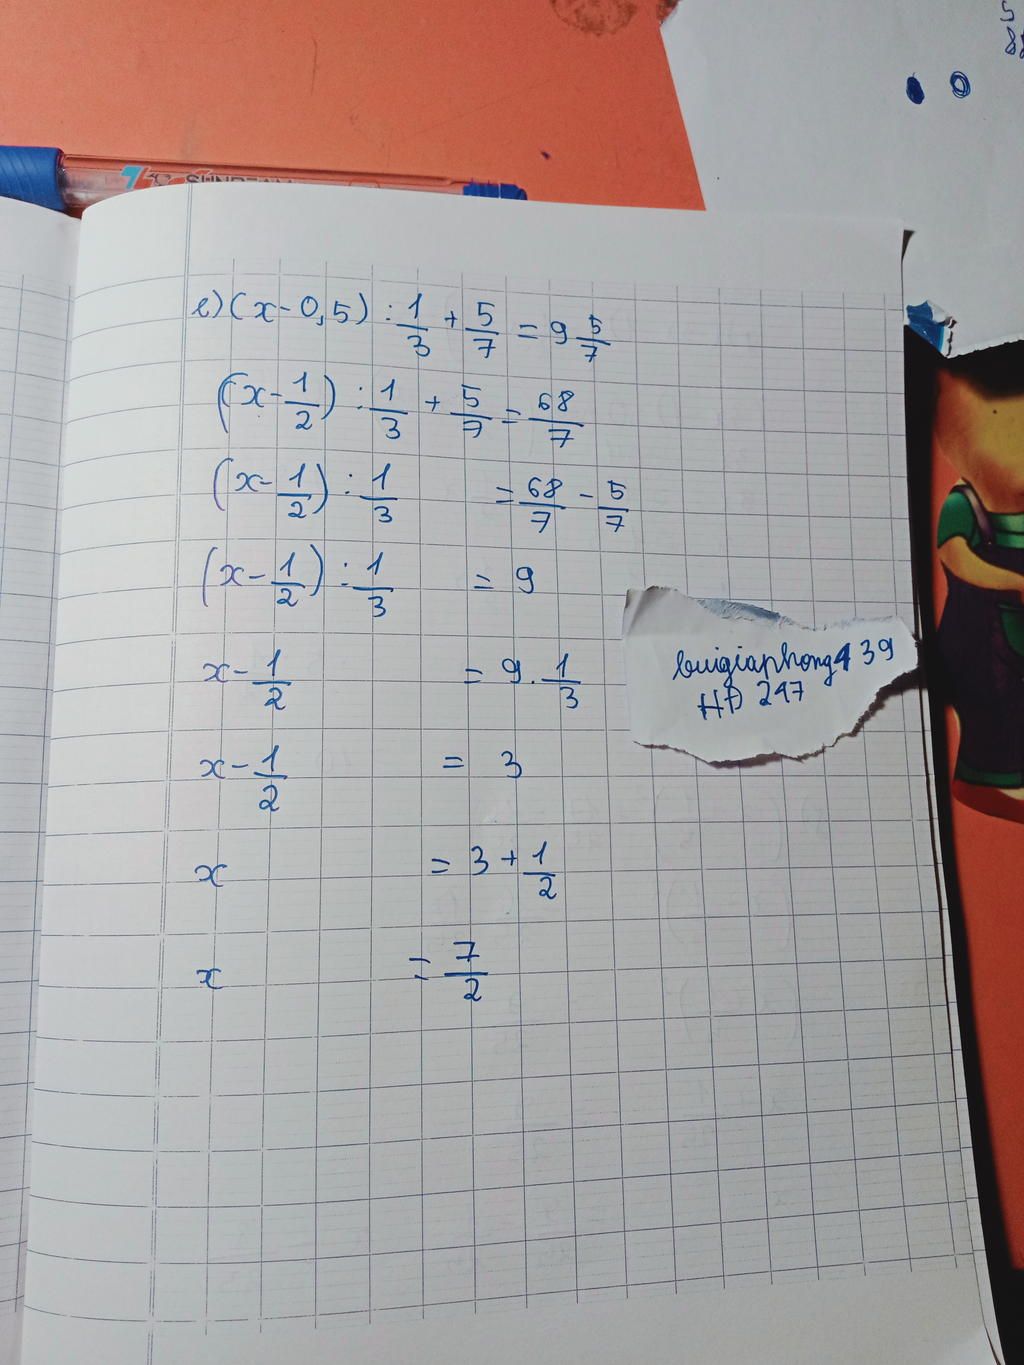 SUNBEAM
e) (x - 0,5) : 1/3 + 5/7 = 9 5/7
(x - 1/2) : 1/3 + 5/7 = 68/7
(x - 1/2) : 1/3 = 68/7 - 5/7
(x - 1/2) : 1/3 = 9
x - 1/2 = 9 . 1/3
x - 1/2 = 3
x = 3 + 1/2
x = 7/2
buigiaphong439
HĐ 247